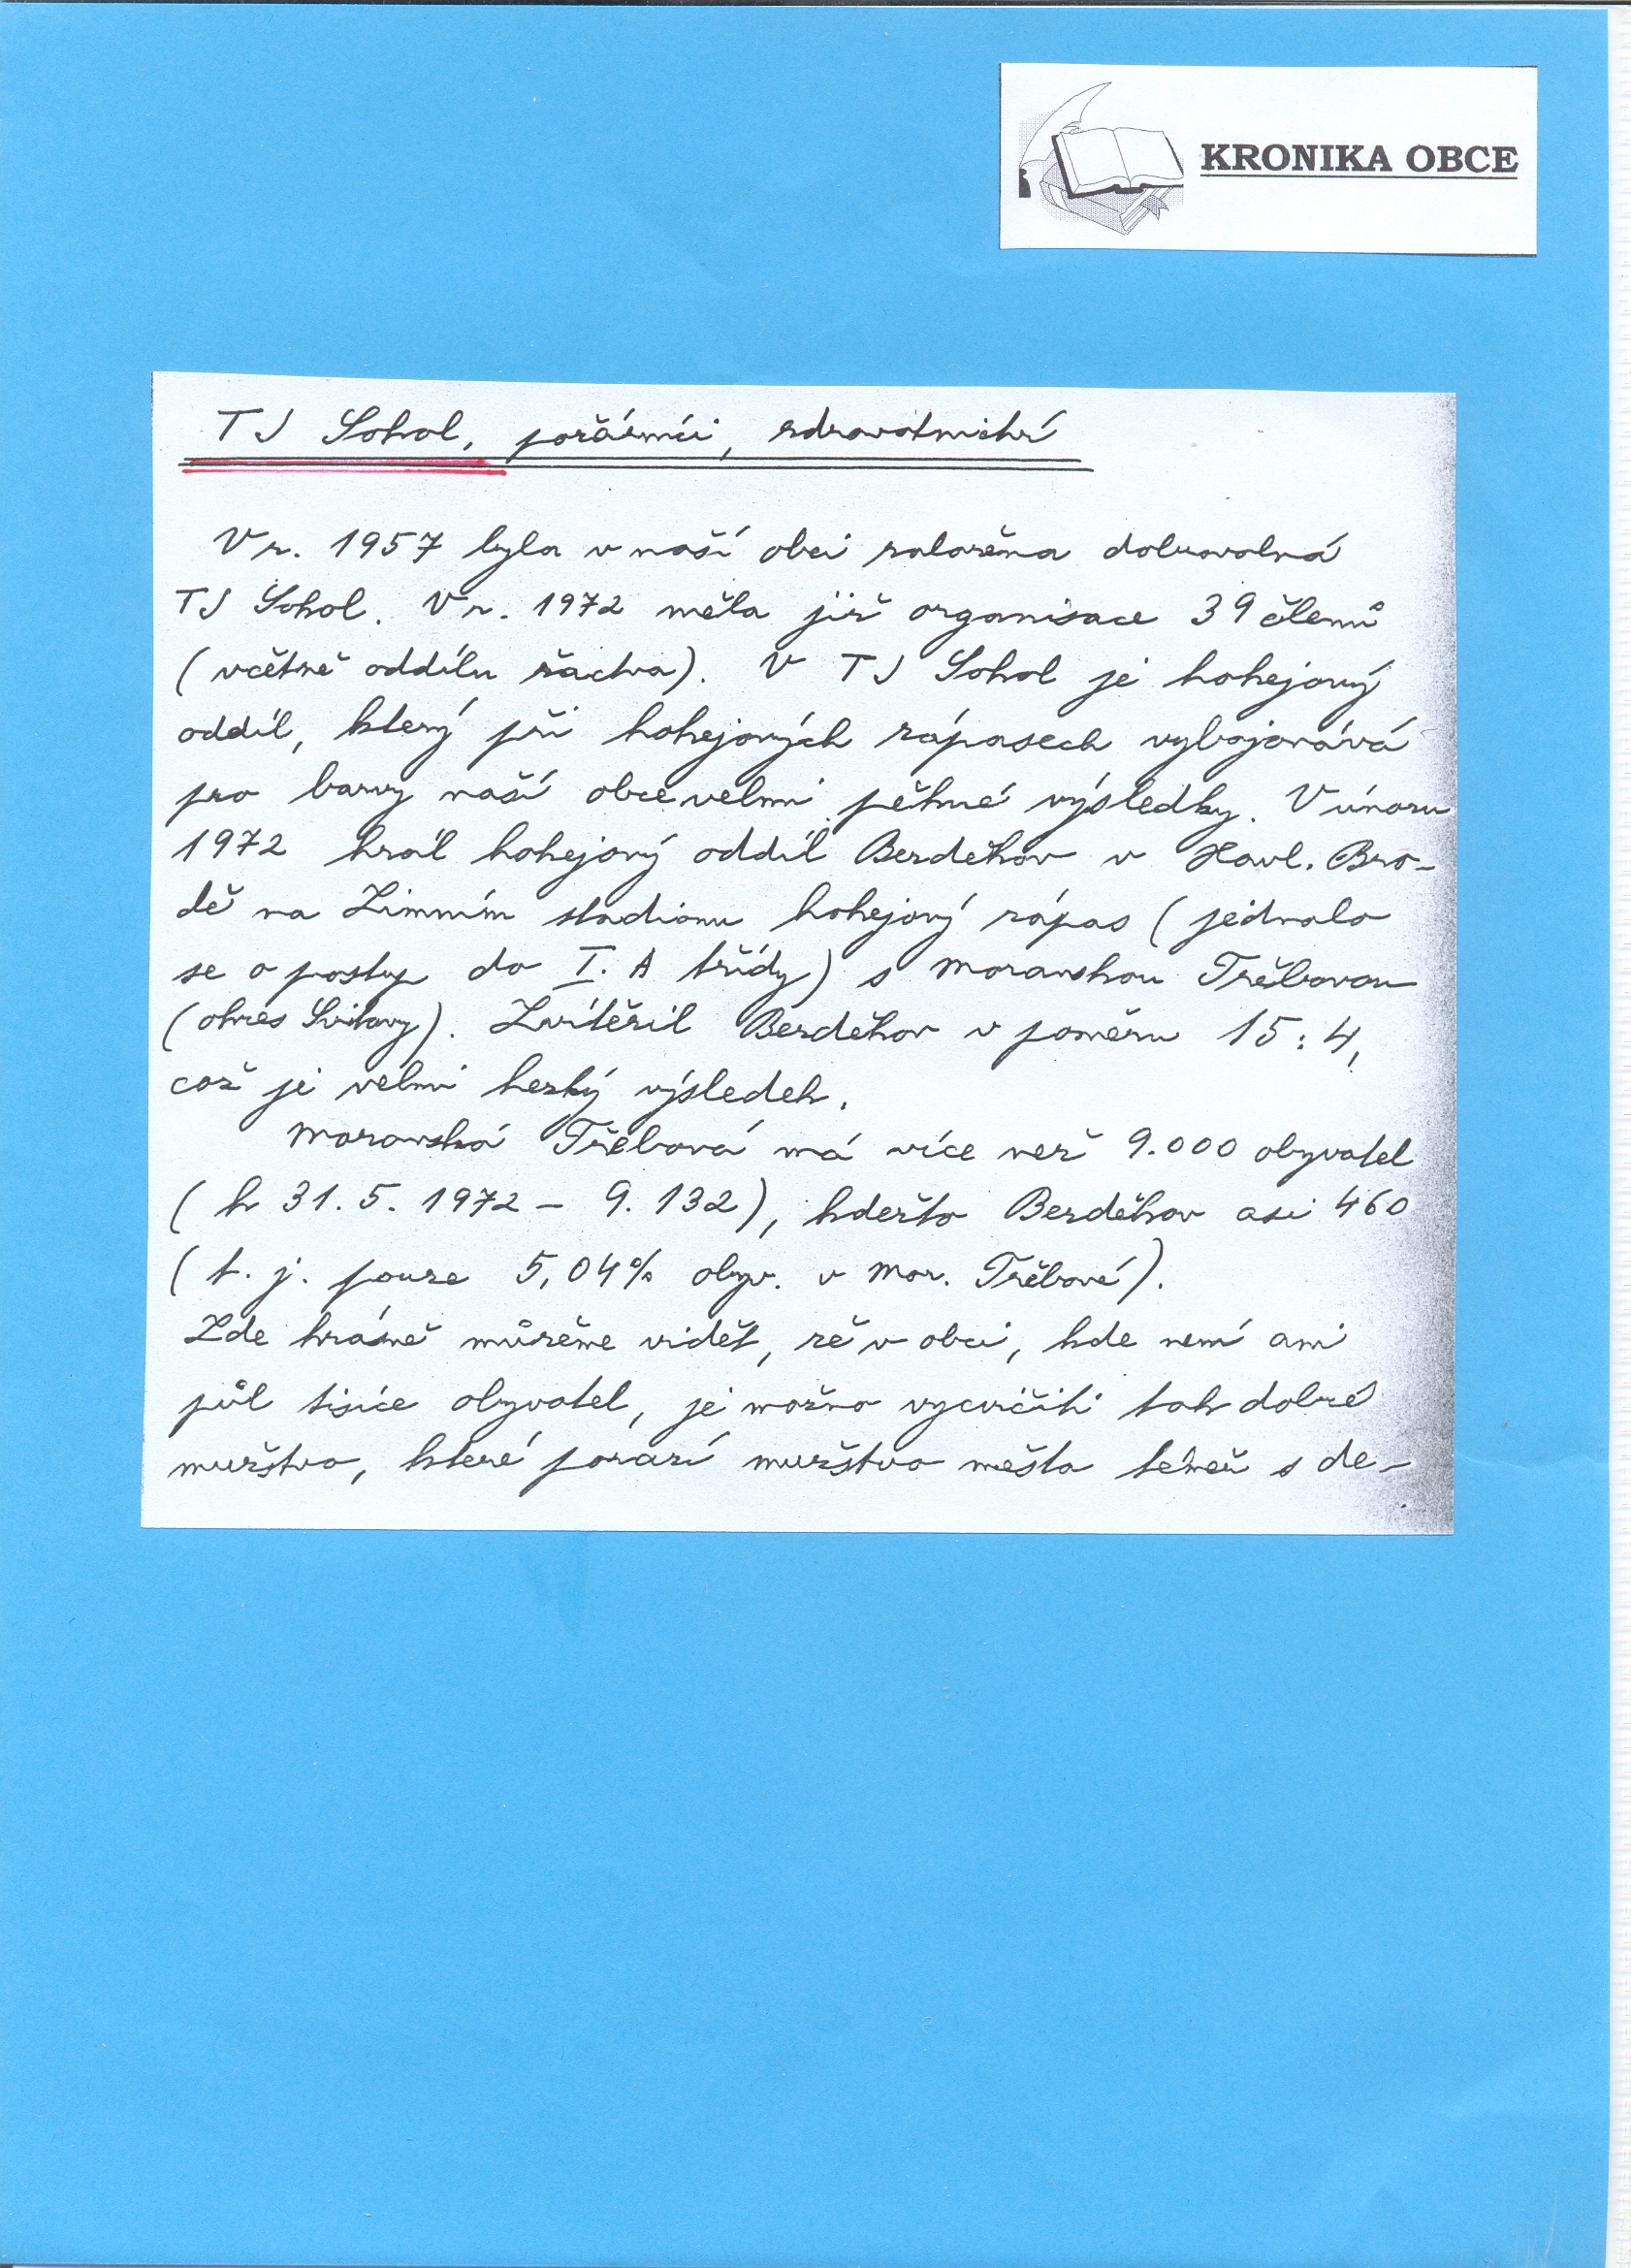 KRONIKA OBCE
TJ Sokol, požárníci, zdravotnictví
V r. 1957 byla v naší obci založena dobrovolná
TJ Sokol. V r. 1972 měla již organisace 39 členů
(včetně oddílu žactva). V TJ Sokol je hokejový
oddíl, který při hokejových zápasech vybojovává
pro barvy naší obce velmi pěkné výsledky. V únoru
1972 hrál hokejový oddíl Bezděkov v Havl. Bro-
dě na Zimním stadionu hokejový zápas (jednalo
se o postup do I. A třídy) s Moravskou Třebovou
(okres Svitavy). Zvítězil Bezděkov v poměru 15:4,
což je velmi hezký výsledek.
Moravská Třebová má více než 9.000 obyvatel
(k 31.5. 1972 – 9.132), kdežto Bezděkov asi 460
(t. j. pouze 5,04% obyv. v Mor. Třebové).
Zde krásně můžeme vidět, že v obci, kde není ani
půl tisíce obyvatel, je možno vycvičiti tak dobré
mužstvo, které porazí mužstvo města téměř s de-